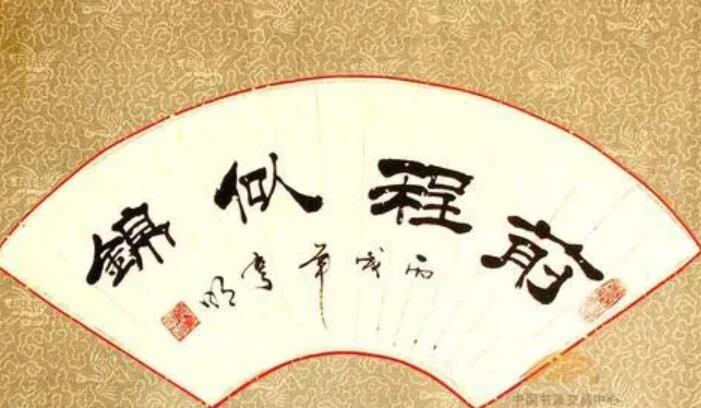 前程似錦
丙戌年
中国书画交易中心